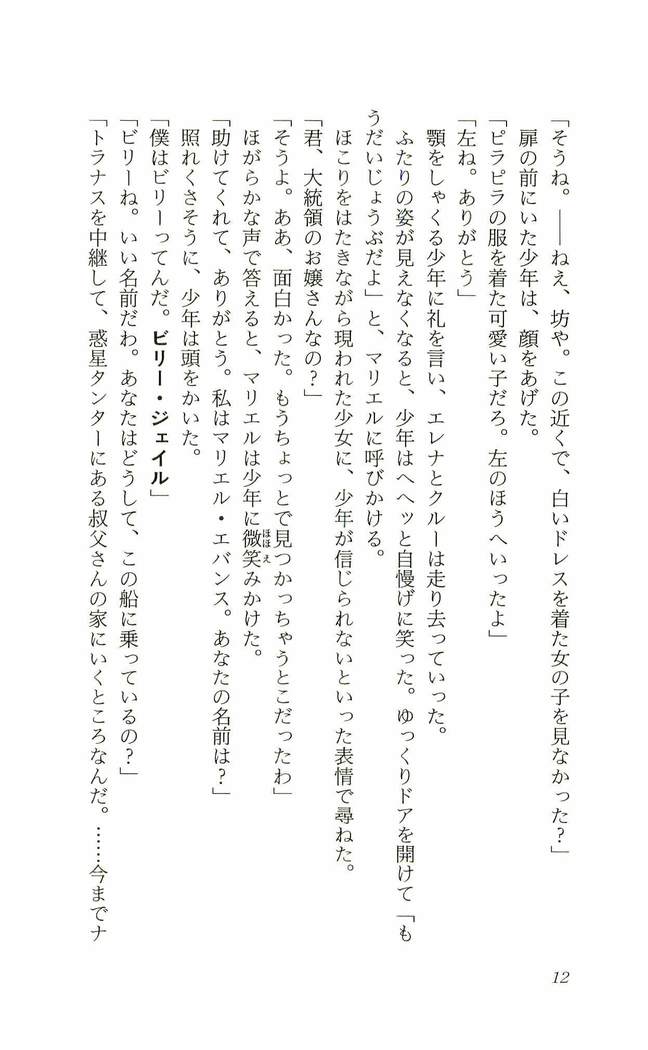 「そうね。――ねえ、坊や。この近くで、白いドレスを着た女の子を見なかった？」
扉の前にいた少年は、顔をあげた。
「ピラピラの服を着た可愛い子だろ。左のほうへいったよ」
「左ね。ありがとう」
顎をしゃくる少年に礼を言い、エレナとクルーは走り去っていった。
ふたりの姿が見えなくなると、少年はへヘッと自慢げに笑った。ゆっくりドアを開けて「も
うだいじょうぶだよ」と、マリエルに呼びかける。
ほこりをはたきながら現われた少女に、少年が信じられないといった表情で尋ねた。
「君、大統領のお嬢さんなの？」
「そうよ。ああ、面白かった。もうちょっとで見つかっちゃうとこだったわ」
ほがらかな声で答えると、マリエルは少年に微笑みかけた。
「助けてくれて、ありがとう。私はマリエル・エバンス。あなたの名前は？」
照れくさそうに、少年は頭をかいた。
「僕はビリーってんだ。ビリー・ジェイル」
「ビリーね。いい名前だわ。あなたはどうして、この船に乗っているの？」
「トラナスを中継して、惑星タンターにある叔父さんの家にいくところなんだ。……今までナ
12